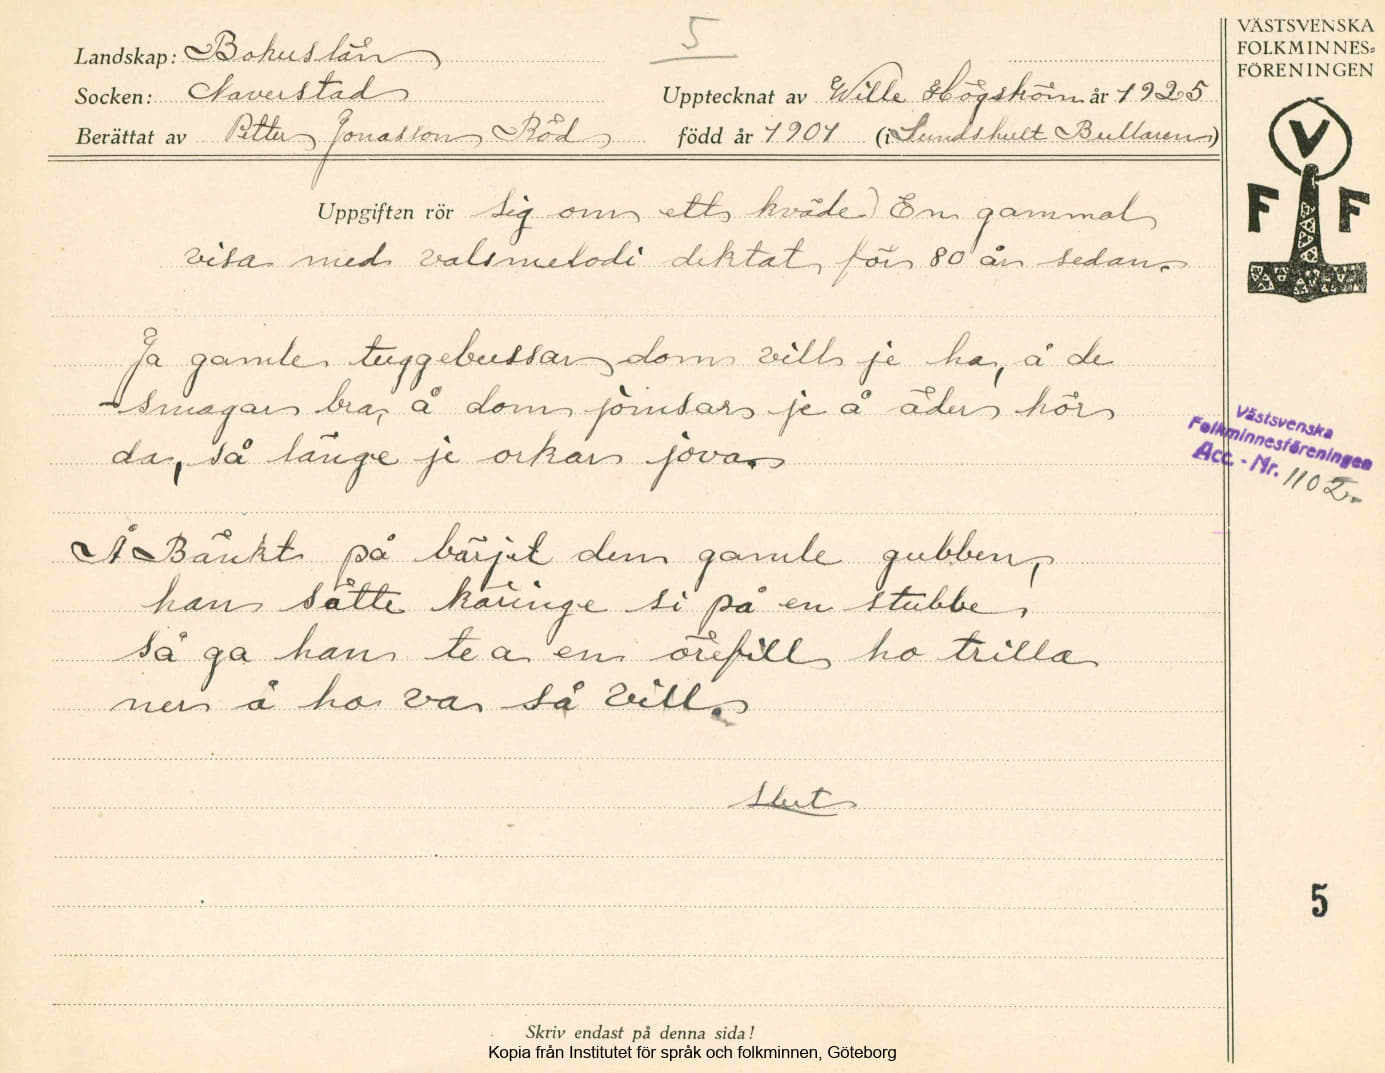 5
VÄSTSVENSKA
FOLKMINNES=
FÖRENINGEN
Landskap: Bohuslän
Socken: Naverstad
Upptecknat av Wille Högström år 1925
Berättat av Petter Jonasson Röd
född år 1901 (i Lundshult Bullaren)
V
F F
Uppgiften rör sig om ett kväde) En gammal
visa med valsmelodi diktat för 80 år sedan.
Ja gamle tuggebussar dom vill je ha, å de
- smagar bra, å dom jömsar je å äder hör
da, så länge je orkar jöva.
Västsvenska
Folkminnesföreningen
Acc. - Nr. 1102.
Å Bänkt på bärjet den gamle gubben,
han såtte käringe si på en stubbe,
så ga han te a en örefill ho trilla
ner å ho va så vill.
Slut
5
Skriv endast på denna sida!
Kopia från Institutet för språk och folkminnen, Göteborg